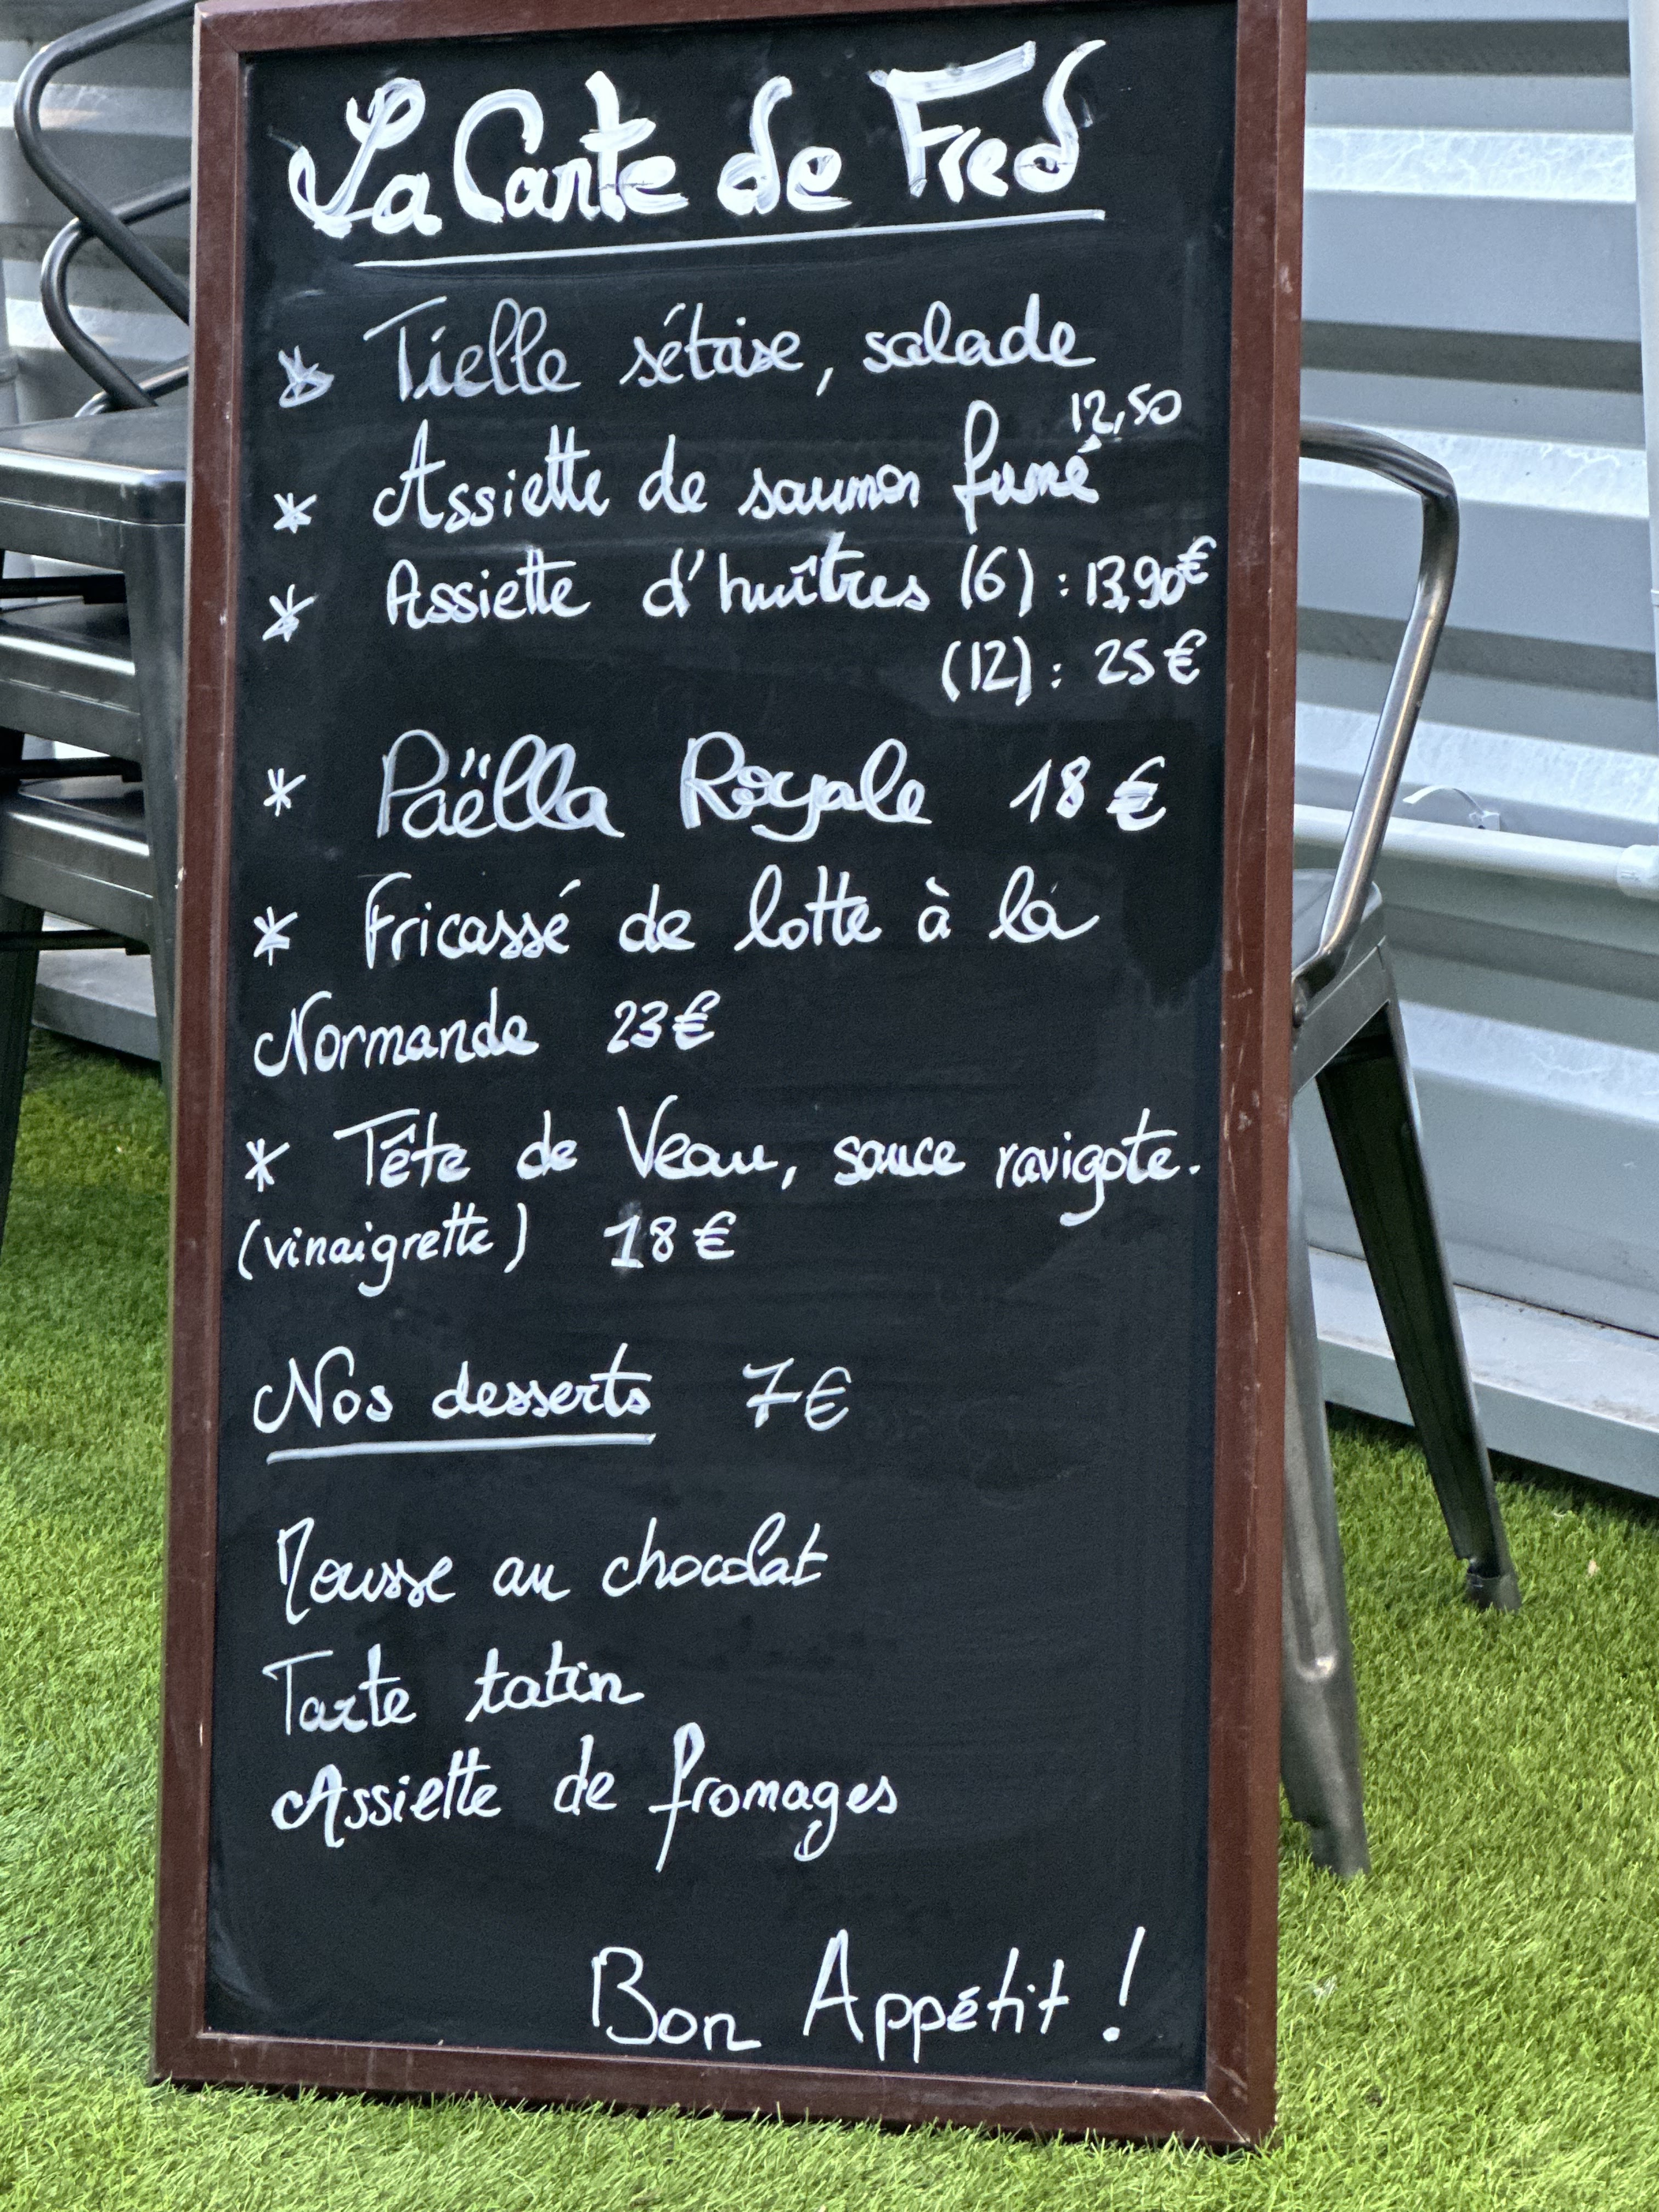 La Carte de Fred
* Tielle sétoise, salade
12,50
* Assiette de saumon fumé
* Assiette d'huîtres (6) : 13,90€
(12) : 25€
* Paëlla Royale 18€
* Fricassé de lotte à la
Normande 23€
* Tête de Veau, sauce ravigote.
(vinaigrette) 18€
Nos desserts 7€
Mousse au chocolat
Tarte tatin
Assiette de fromages
Bon Appétit !